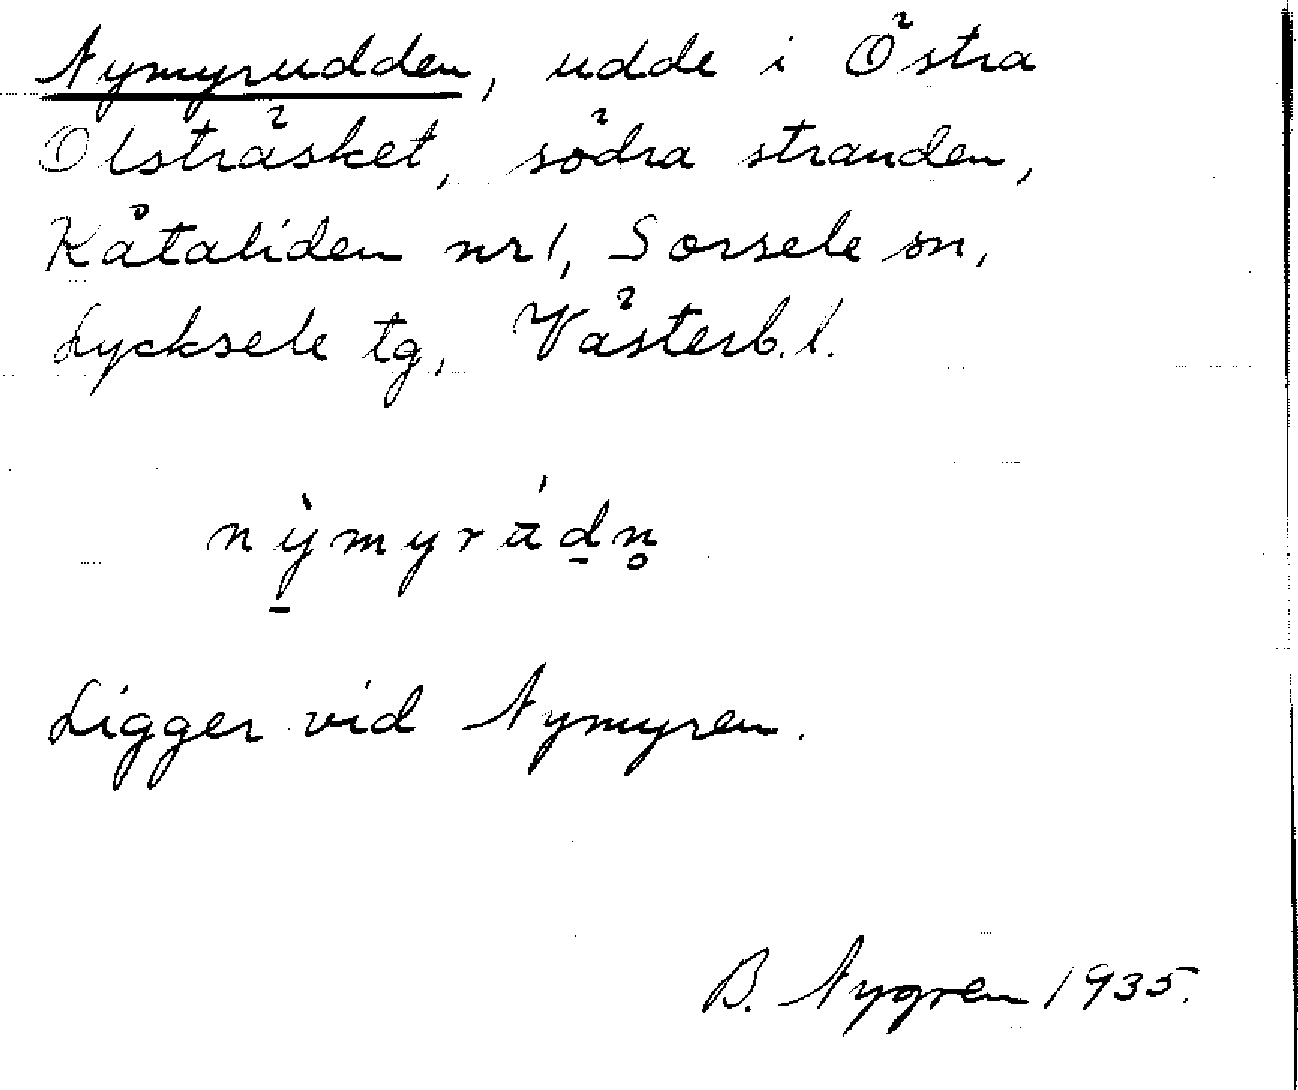 Nymyrudden, udde i Östra
Olsträsket, södra stranden,
Kåtaliden nr 1, Sorsele sn,
Lycksele tg, Västerb. l.
Ligger vid Nymyren.
B. Nygren 1935.